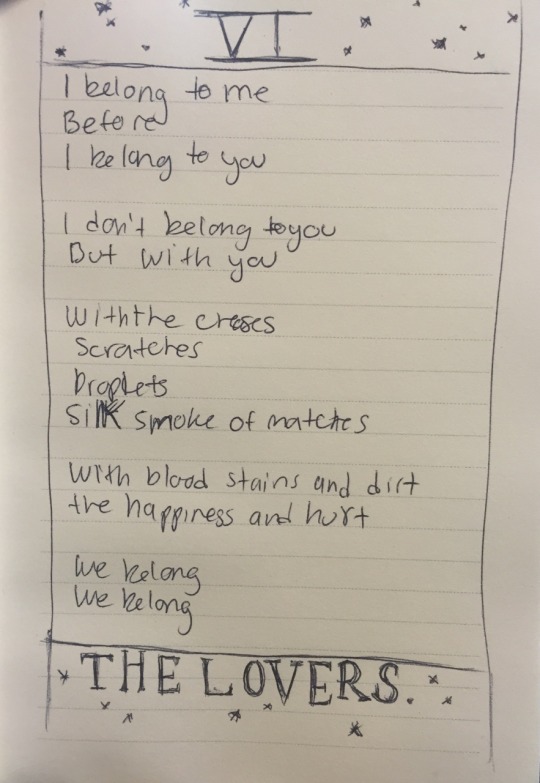 VI
I belong to me
Before
I belong to you
I don't belong to you
But with you
With the creses
Scratches
Droplets
Silk smoke of matches
With blood stains and dirt
the happiness and hurt
We belong
We belong
THE LOVERS.